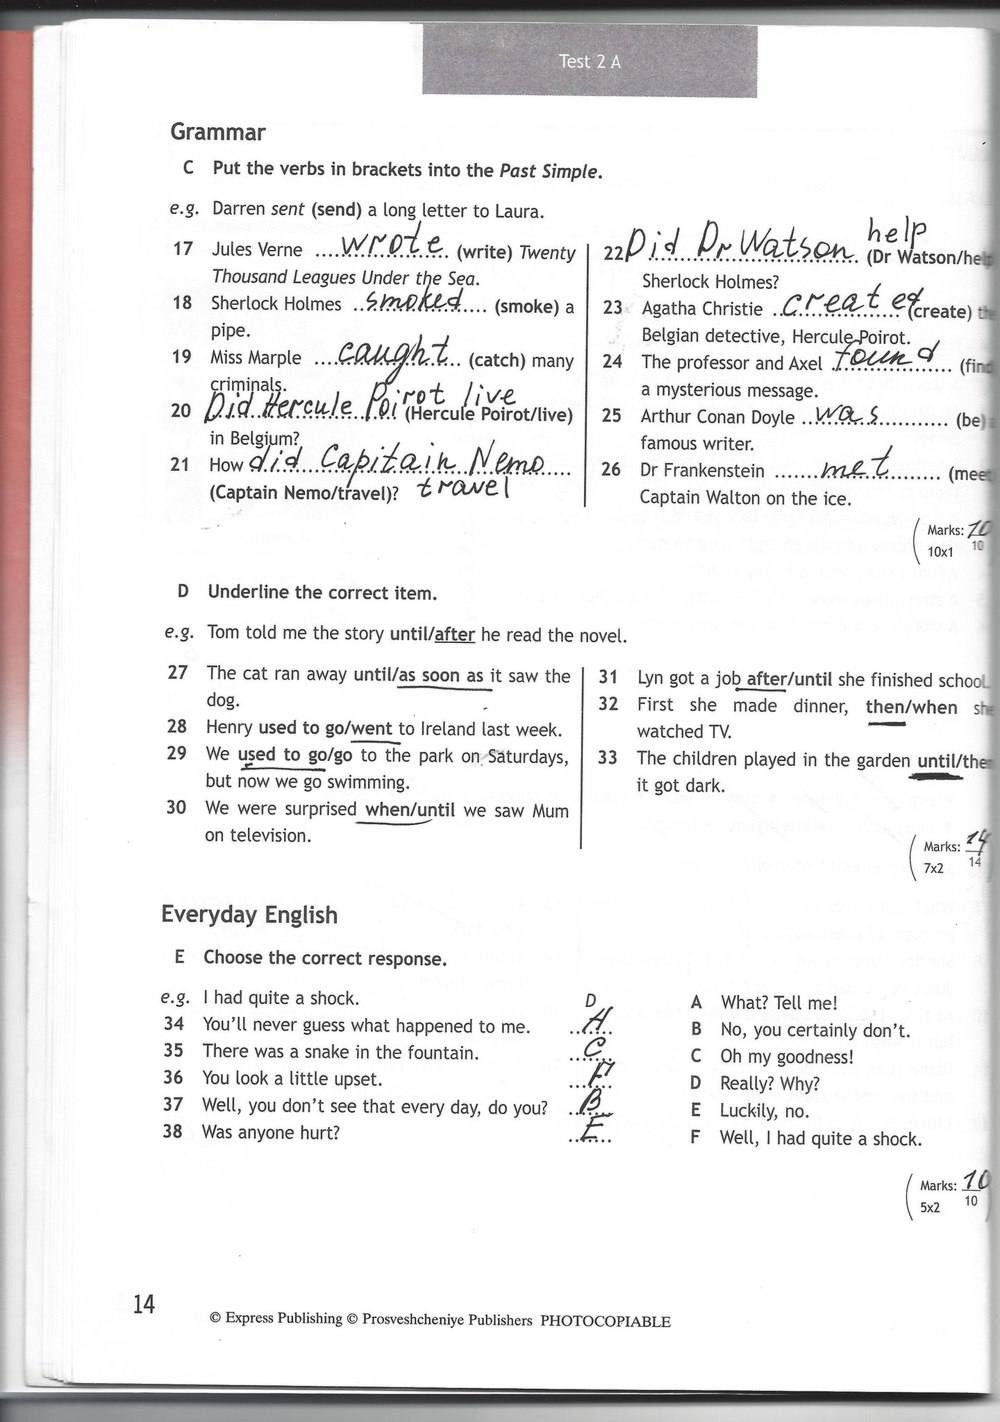 Test 2 A
Grammar
C Put the verbs in brackets into the Past Simple.
e.g. Darren sent (send) a long letter to Laura.
17 Jules Verne ....wrote.... (write) Twenty
Thousand Leagues Under the Sea.
18 Sherlock Holmes ..smoked.... (smoke) a
pipe.
19 Miss Marple ....caught.... (catch) many
criminals.
20 Did Hercule Poirot live (Hercule Poirot/live)
in Belgium?
21 How did Capitain Nemo....
(Captain Nemo/travel)? travel
help
22 Did Dr Watson.. (Dr Watson/help
Sherlock Holmes?
23 Agatha Christie ..created (create) the
Belgian detective, Hercule Poirot.
24 The professor and Axel ..found.... (find
a mysterious message.
25 Arthur Conan Doyle ..was............ (be) a
famous writer.
26 Dr Frankenstein .......met........ (meet
Captain Walton on the ice.
Marks: 10
10x1 10
D Underline the correct item.
e.g. Tom told me the story until/after he read the novel.
27 The cat ran away until/as soon as it saw the
dog.
28 Henry used to go/went to Ireland last week.
29 We used to go/go to the park on Saturdays,
but now we go swimming.
30 We were surprised when/until we saw Mum
on television.
31 Lyn got a job after/until she finished school.
32 First she made dinner, then/when she
watched TV.
33 The children played in the garden until/then
it got dark.
Marks: 14
7x2 14
Everyday English
E Choose the correct response.
e.g. I had quite a shock. D
34 You'll never guess what happened to me. ..A....
35 There was a snake in the fountain. ..C....
36 You look a little upset. ..F....
37 Well, you don't see that every day, do you? ..B....
38 Was anyone hurt? ..E....
A What? Tell me!
B No, you certainly don't.
C Oh my goodness!
D Really? Why?
E Luckily, no.
F Well, I had quite a shock.
Marks: 10
5x2 10
14
© Express Publishing © Prosveshcheniye Publishers PHOTOCOPIABLE